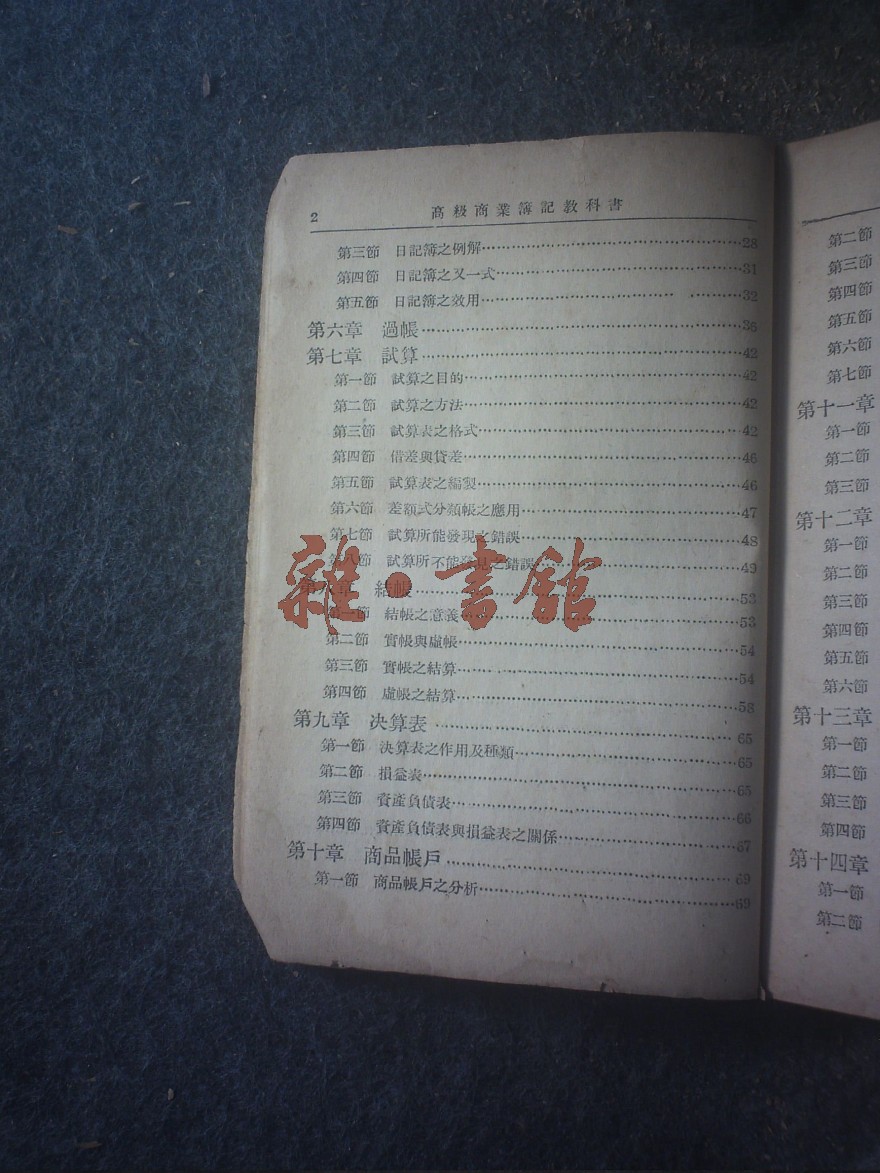 2 高級商業簿記教科書
第三節 日記簿之例解……28
第四節 日記簿之又一式……31
第五節 日記簿之效用……32
第六章 過帳……36
第七章 試算……42
第一節 試算之目的……42
第二節 試算之方法……42
第三節 試算表之格式……42
第四節 借差與貸差……46
第五節 試算表之編製……46
第六節 差額式分類帳之應用……47
第七節 試算所能發現之錯誤……48
第八節 試算所不能發見之錯誤……49
第八章 結帳……53
第一節 結帳之意義……53
第二節 實帳與虛帳……54
第三節 實帳之結算……54
第四節 虛帳之結算……58
第九章 决算表……65
第一節 決算表之作用及種類……65
第二節 損益表……65
第三節 資產負債表……66
第四節 資產負債表與損益表之關係……67
第十章 商品帳戶……69
第一節 商品帳戶之分析……69
雜·書館
第二節
第三節
第四節
第五節
第六節
第七節
第十一章
第一節
第二節
第三節
第十二章
第一節
第二節
第三節
第四節
第五節
第六節
第十三章
第一節
第二節
第三節
第四節
第十四章
第一節
第二節